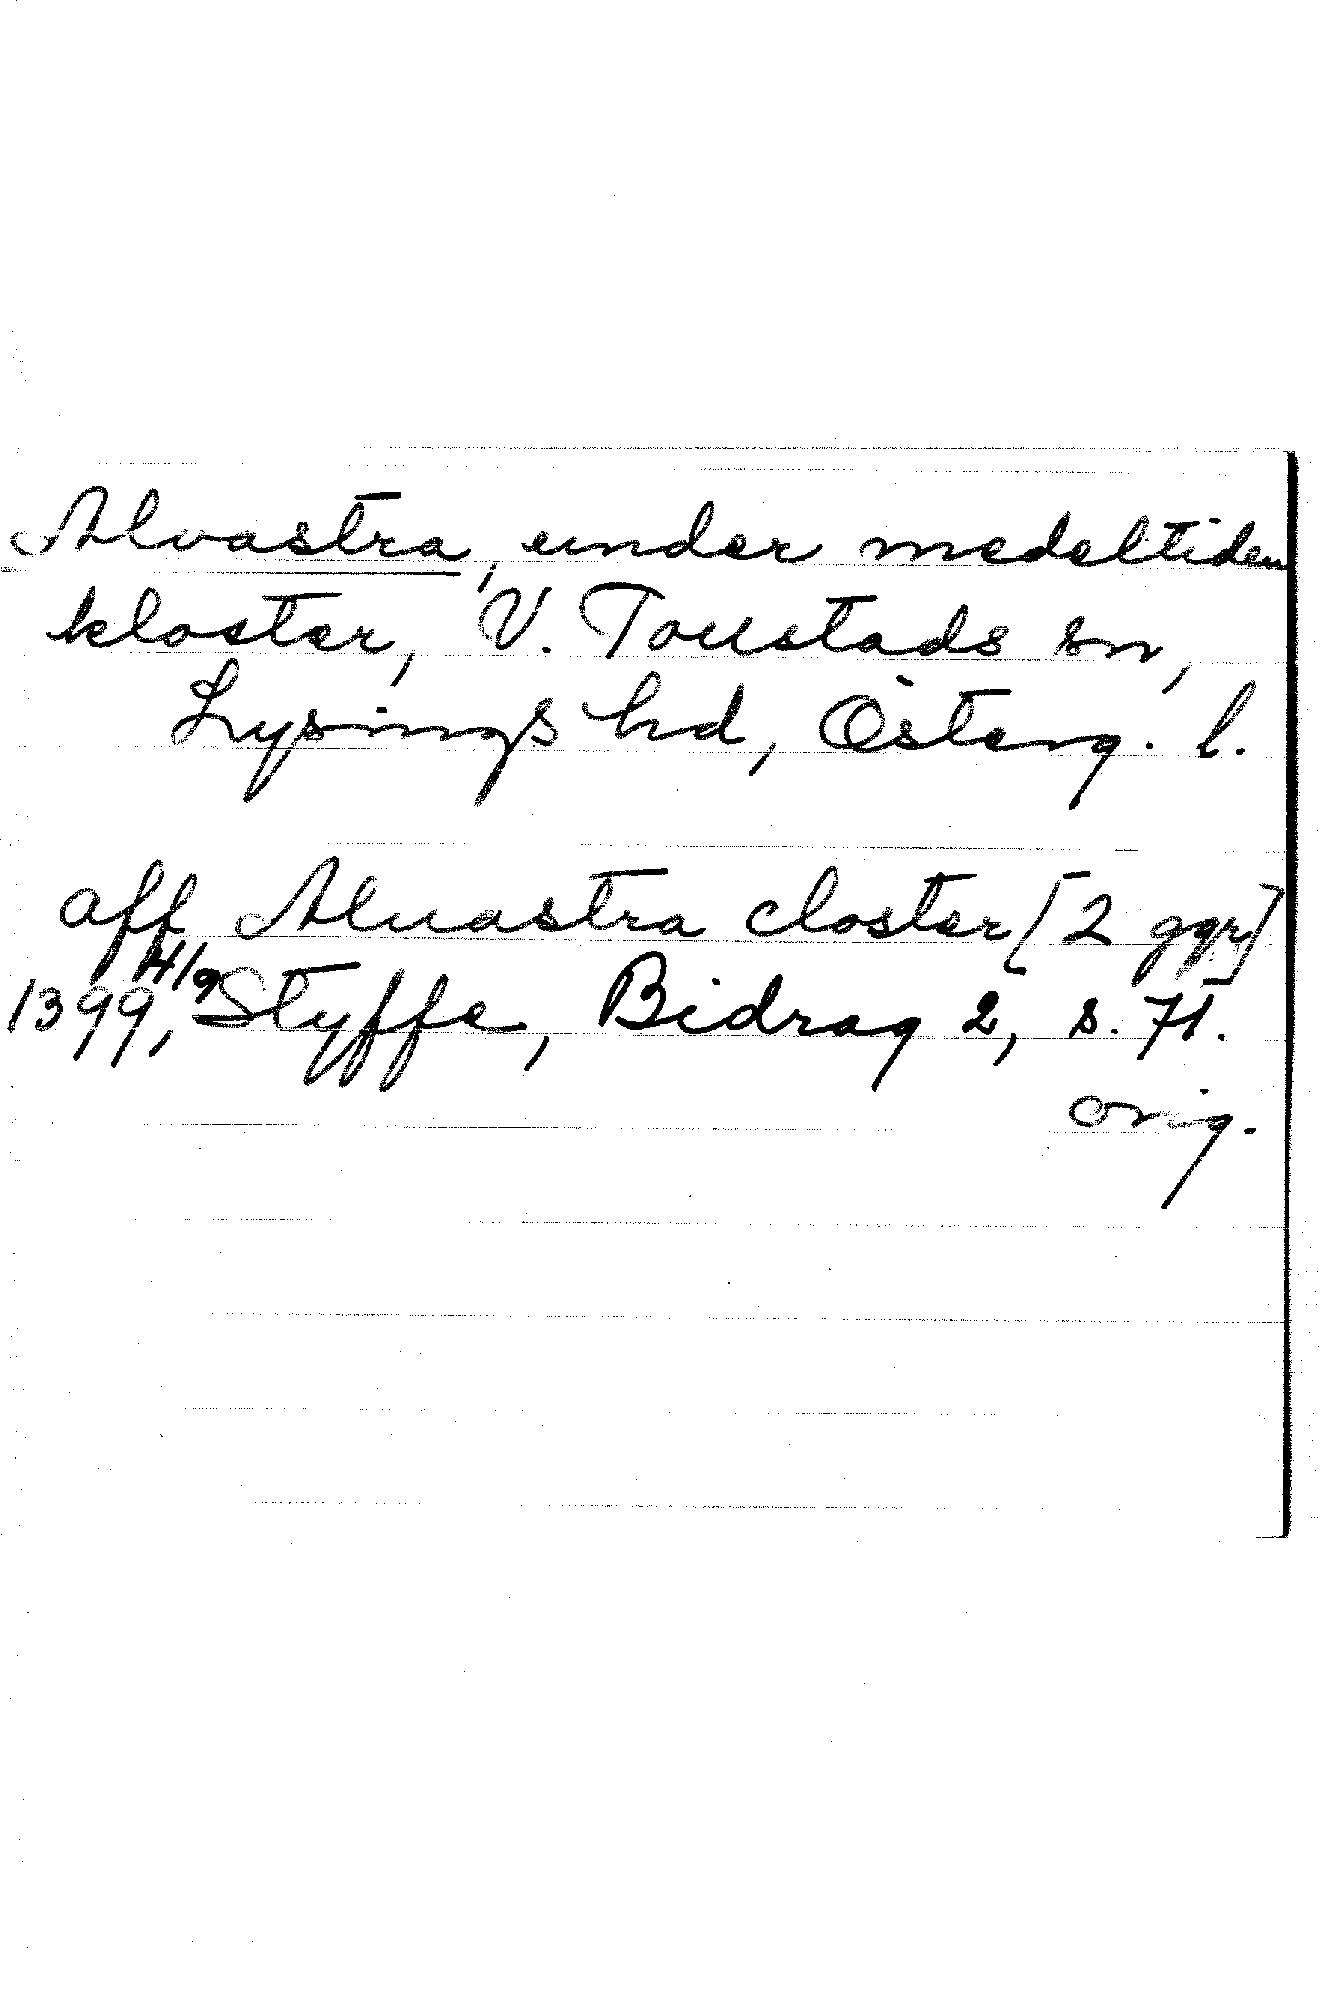 Alvastra, under medeltiden
kloster, V. Toustads sn,
Lysings hd, Österg. l.
aff Aluastra closter [2 ggr]
1399, 4/9 Styffe, Bidrag 2, s. 71.
orig.